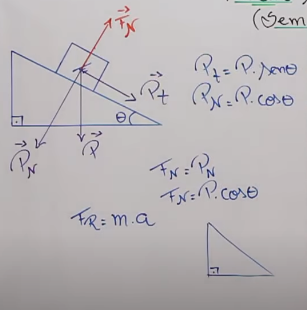 (Sem
F⃗N
P⃗t
θ
P⃗N
P⃗
Pt = P. senθ
PN = P. cosθ
FN = PN
FN = P. cosθ
FR = m.a